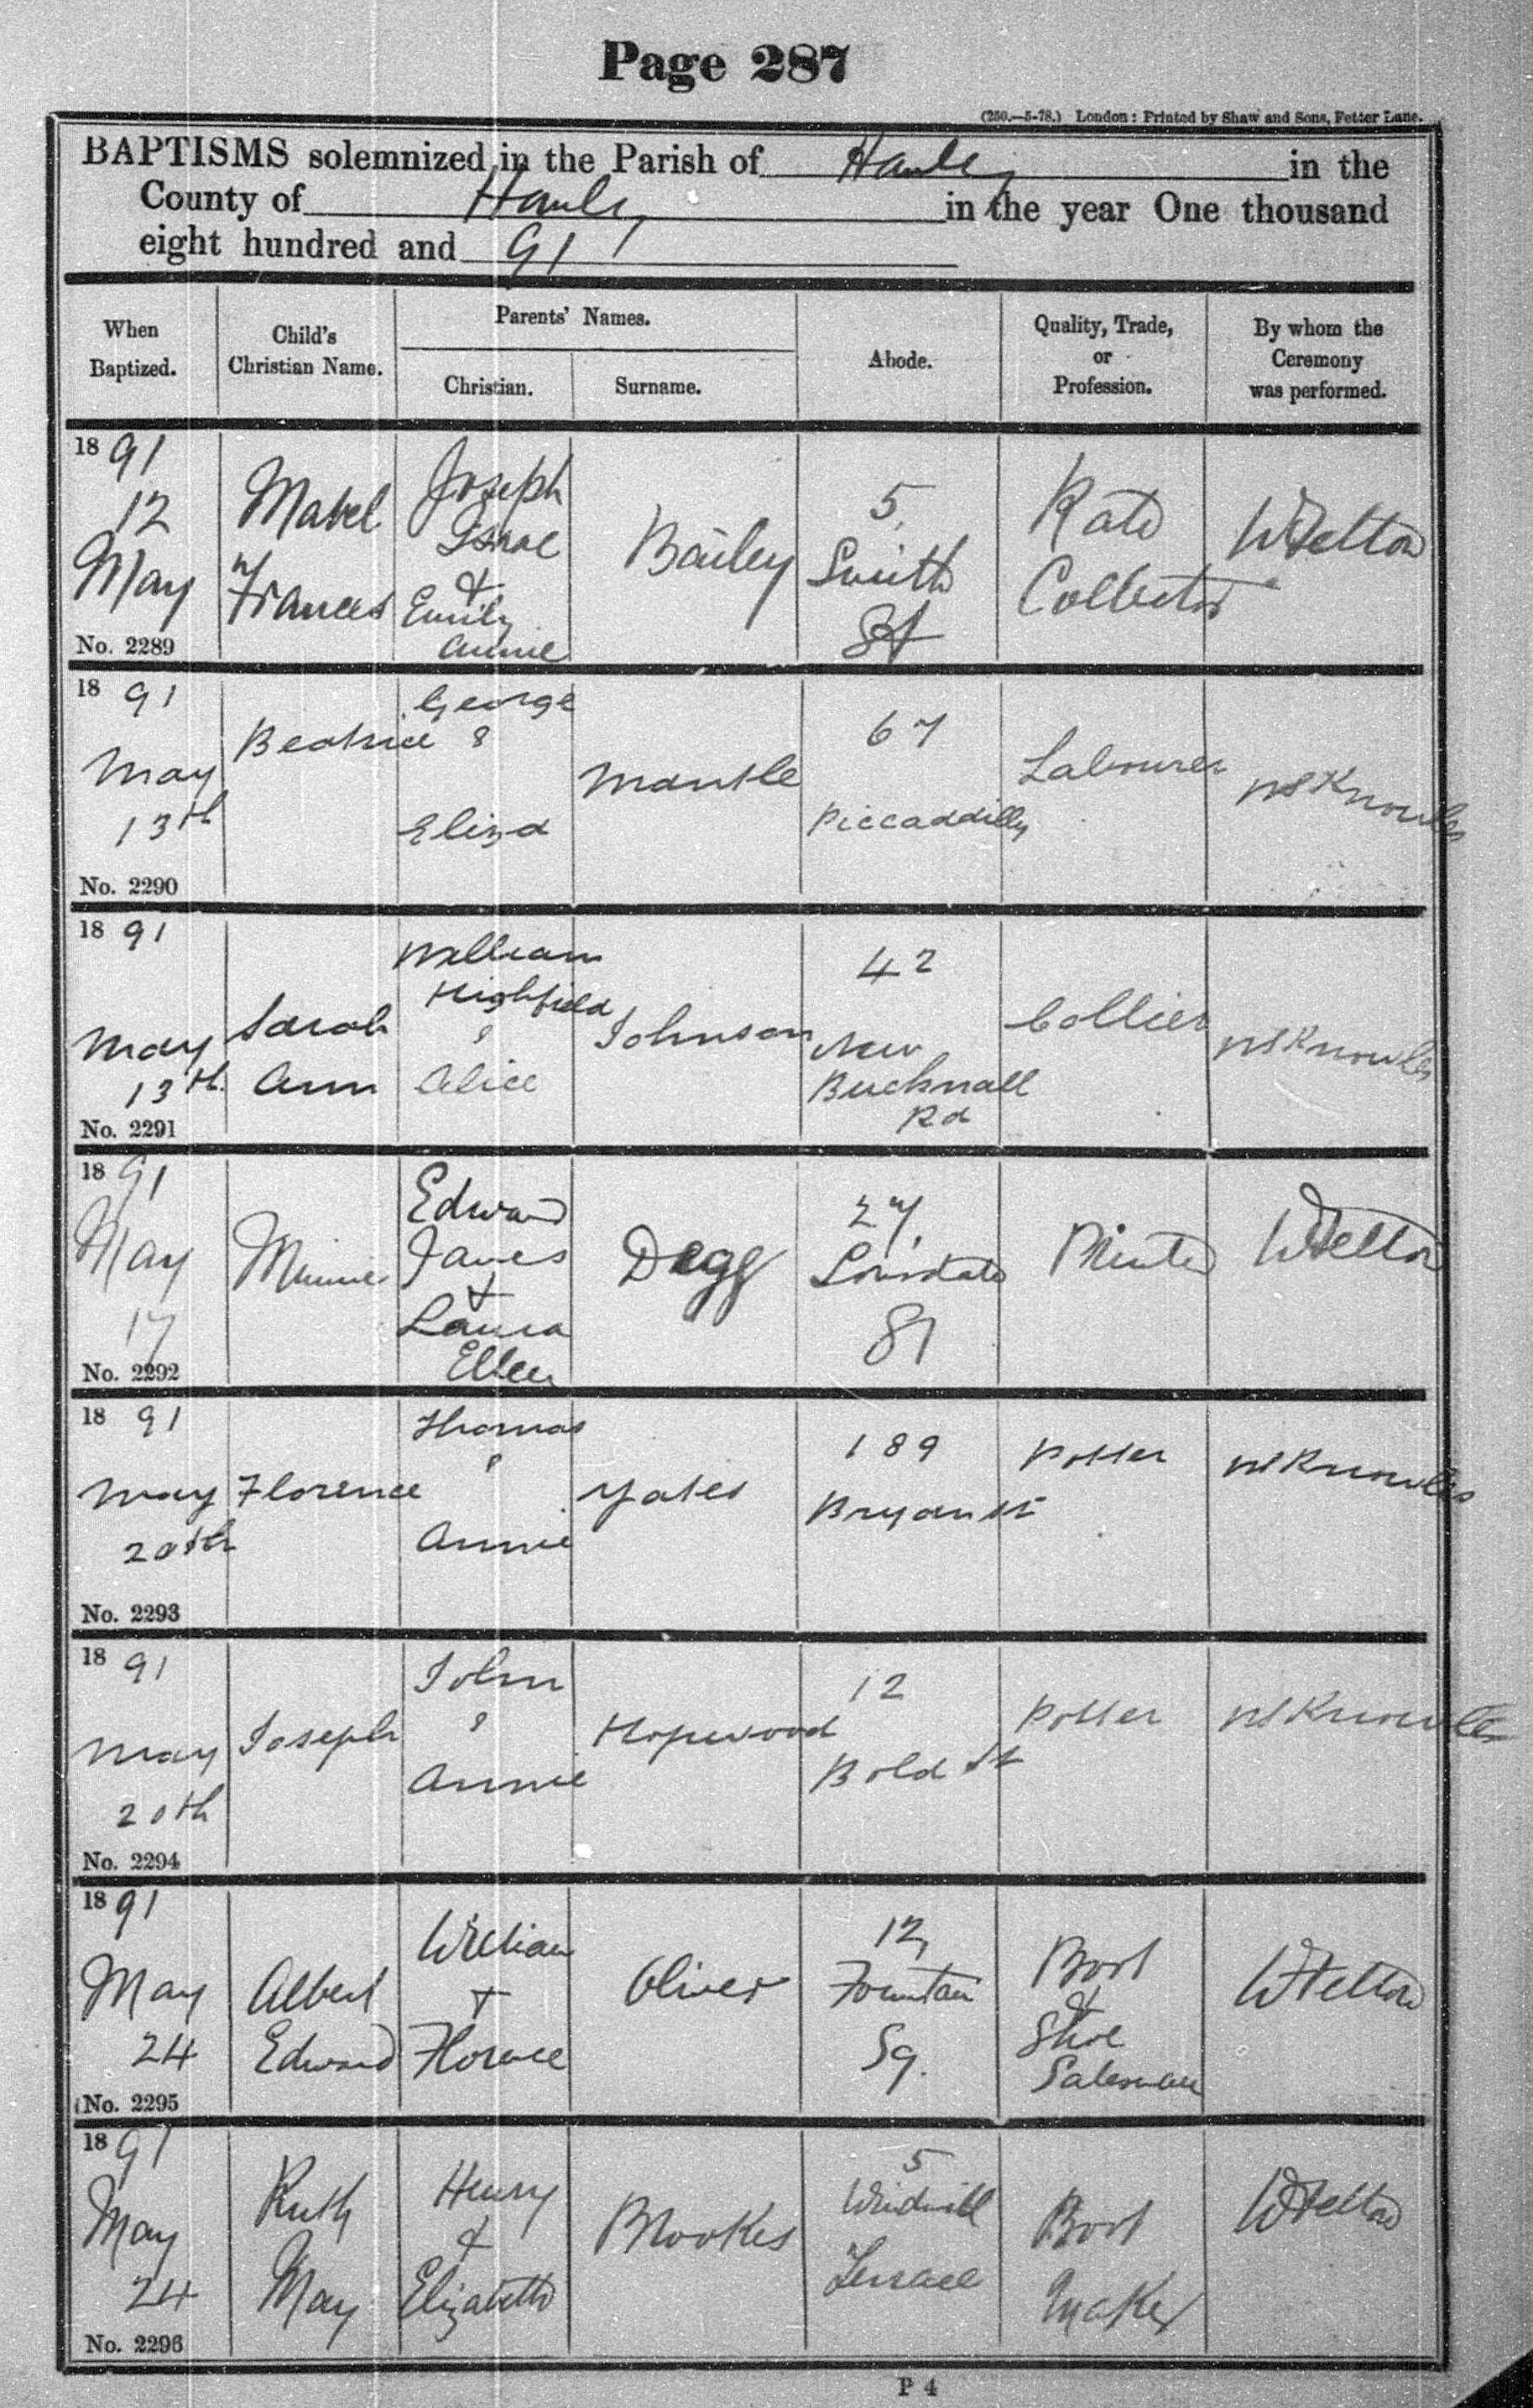 Page 287
(250.—5-78.) London: Printed by Shaw and Sons, Fetter Lane.
BAPTISMS solemnized in the Parish of Hanley in the
County of Hanley in the year One thousand
eight hundred and 91
When Baptized.
Child's Christian Name.
Parents' Names.
Christian.
Surname.
Abode.
Quality, Trade, or Profession.
By whom the Ceremony was performed.
1891
12
May
No. 2289
Mabel
Frances
Joseph
&
Emily
Annie
Bailey
5,
Smith
St
Rate
Collector
1891
May
13th
No. 2290
Beatrice
George
&
Eliza
Mantle
67
Piccaddilly
Labourer
Knowles
1891
May
13th
No. 2291
Sarah
Ann
William
Highfield
&
Alice
Johnson
42
New
Bucknall
Rd
Collier
Knowles
1891
May
17
No. 2292
Minnie
Edward
James
&
Laura
Ellen
Degg
27,
Lonsdale
St
Printer
1891
May
20th
No. 2293
Florence
Thomas
&
Annie
Yates
189
Bryan St
Potter
Knowles
1891
May
20th
No. 2294
Joseph
John
&
Annie
Hopwood
12
Bold St
Potter
Knowles
1891
May
24
No. 2295
Albert
Edward
William
+
Florence
Oliver
12,
Fountain
Sq.
Boot
&
Shoe
Salesman
1891
May
24
No. 2296
Ruth
May
Henry
&
Elizabeth
Brookes
5
Windmill
Terrace
Boot
Maker
P 4